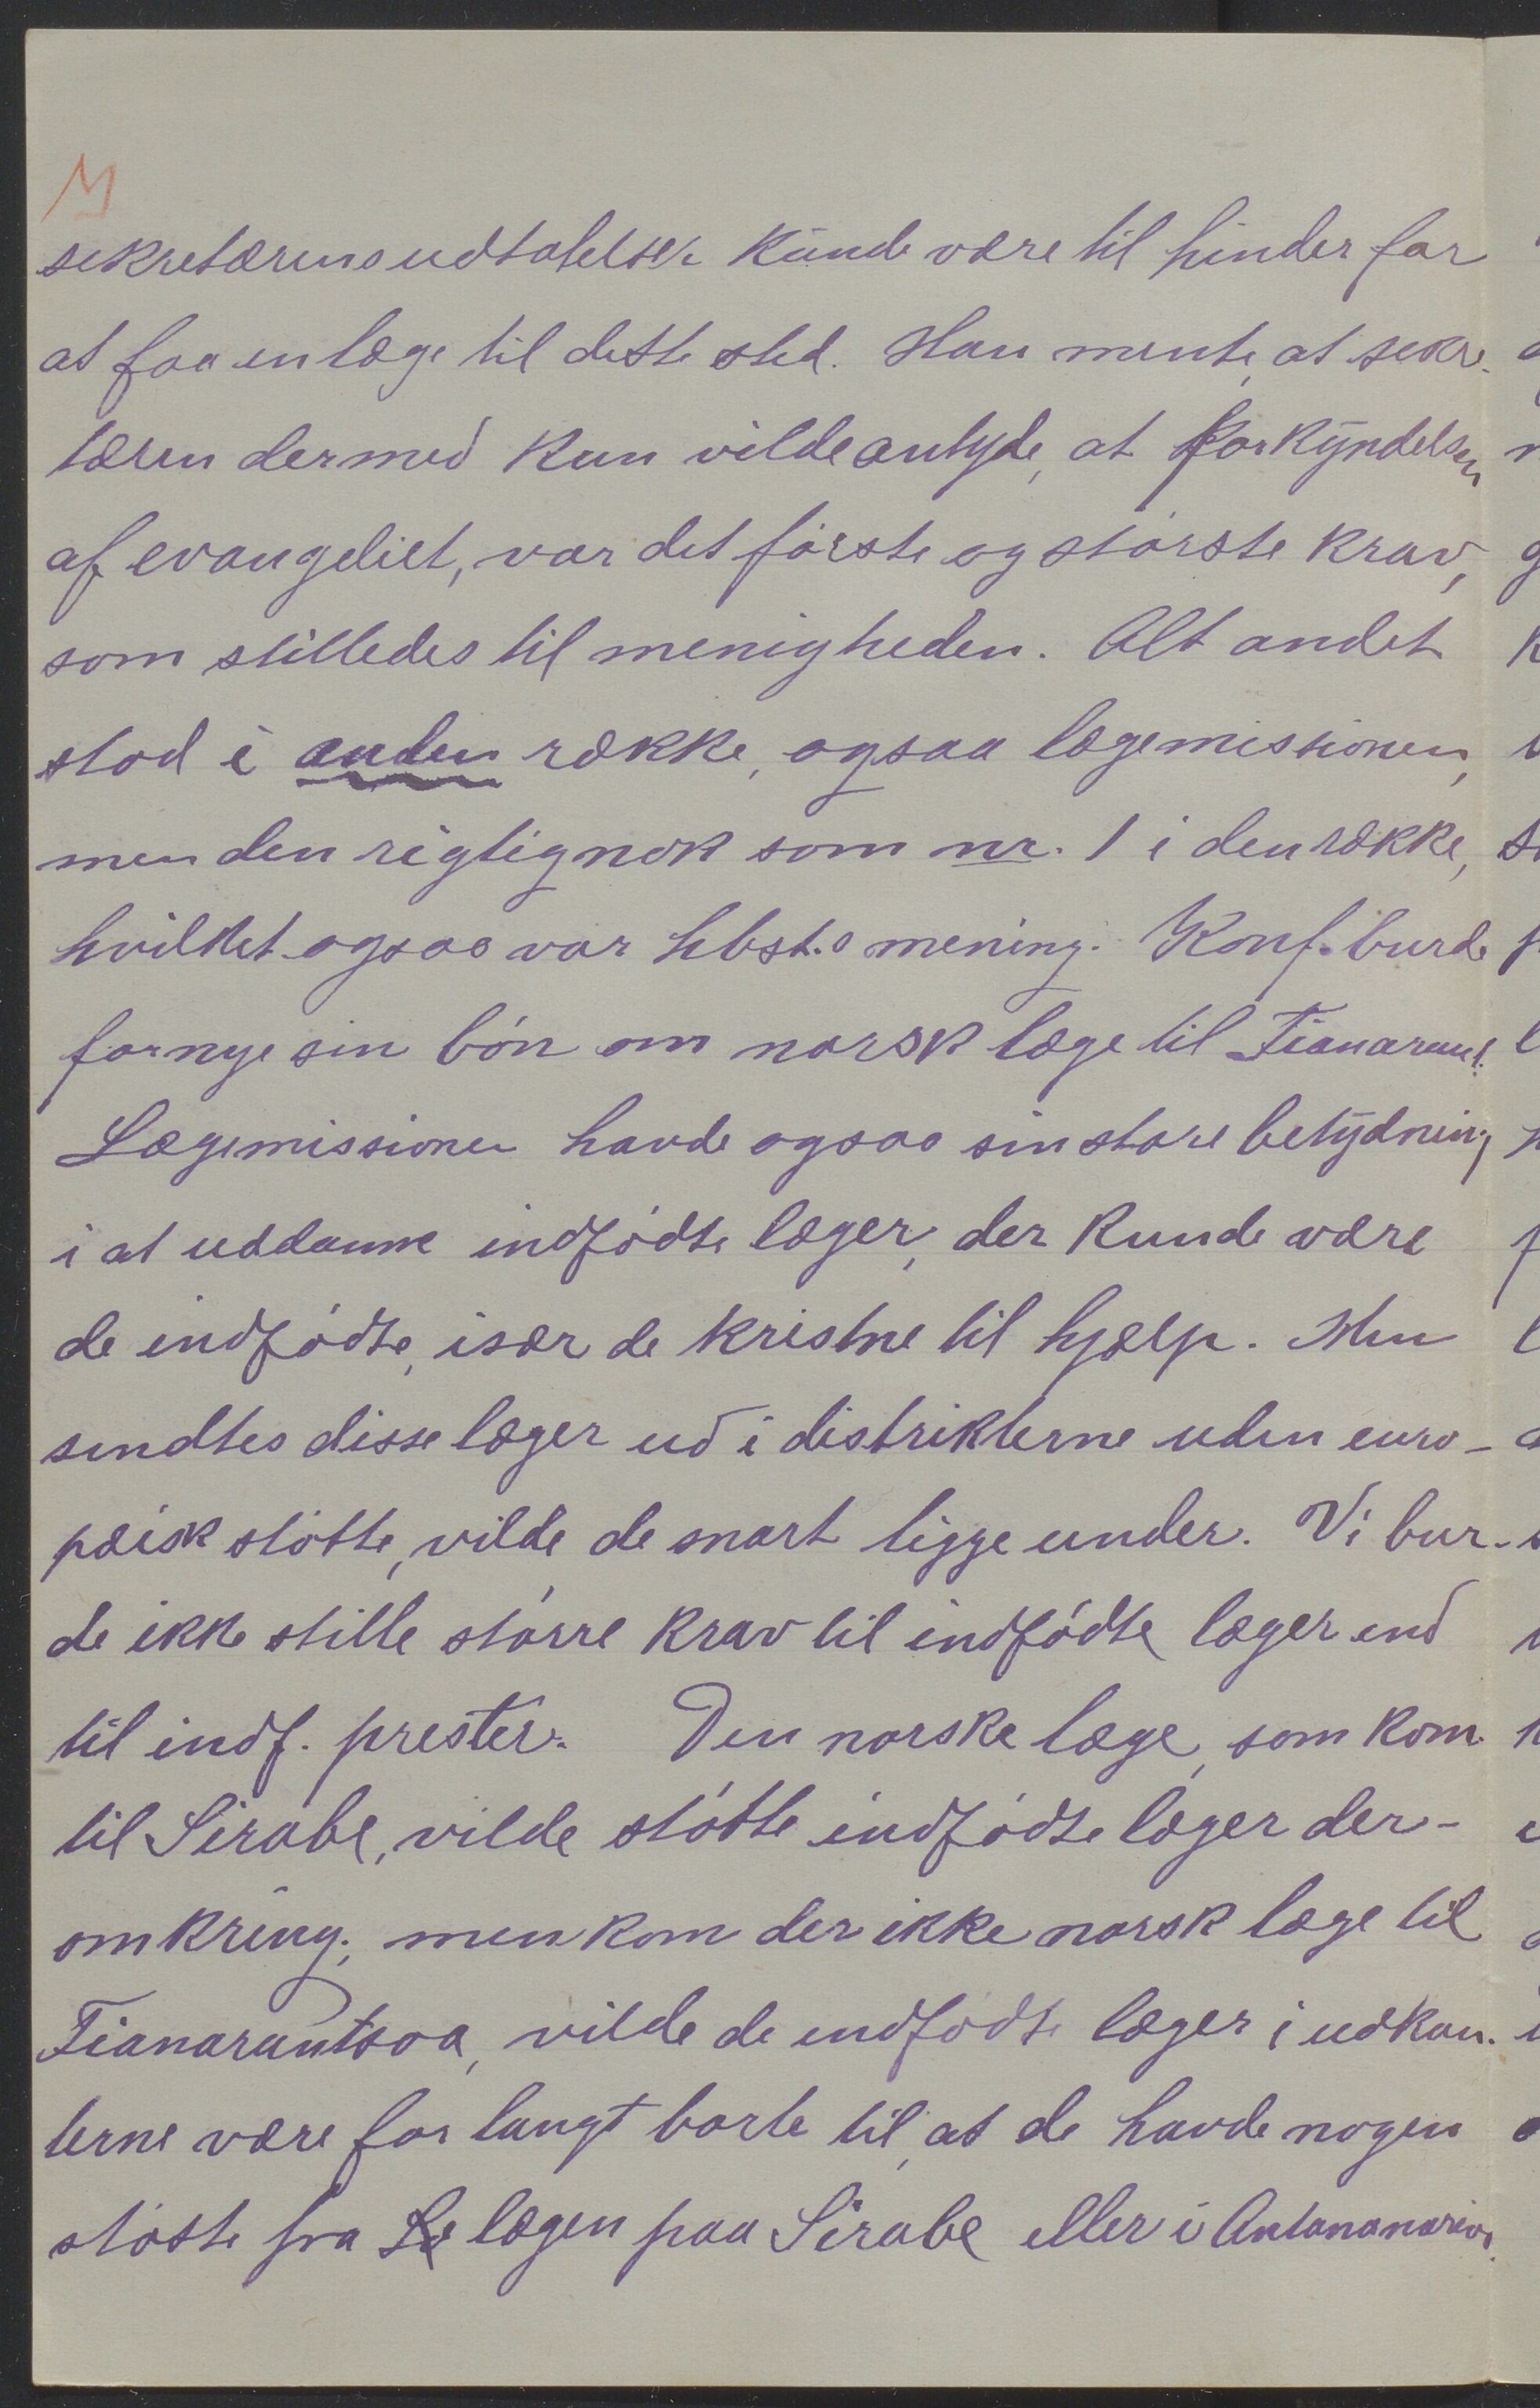 sekretærens udtalelser kunde være til hinder for
at faa en læge til dette sted. Han mente, at sekre-
tæren dermed kun vilde antyde, at forkyndelsen
af evangeliet, var det første og største krav,
som stilledes til menigheden. Alt andet
stod i anden række, ogsaa lægemissionen,
men den rigtignok som nr. 1 i den række,
hvilket ogsaa var hbst.s mening. Konf. burde
fornye sin bön om norsk læge til Fianarant.
Lægemissionen havde ogsaa sin store betydning
i at uddanne indfödte læger, der kunde være
de indfödte, især de kristne til hjælp. Men
sendtes disse læger ud i distrikterne uden euro-
pæisk stötte, vilde de snart ligge under. Vi bur-
de ikke stille större krav til indfödte læger end
til indf. prester. Den norske læge, som kom
til Sirabe, vilde stötte indfödte læger der-
omkring; men kom der ikke norsk læge til
Fianarantsoa, vilde de indfödte læger i udkan-
terne være for langt borte til, at de havde nogen
stötte fra lægen paa Sirabe eller i Antananarivo.